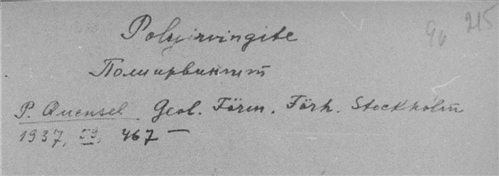 Polyirvingite
90 215
Полиирвингит
P. Quensel Geol. Fören. Förh. Stockholm
1937, 59, 467 —